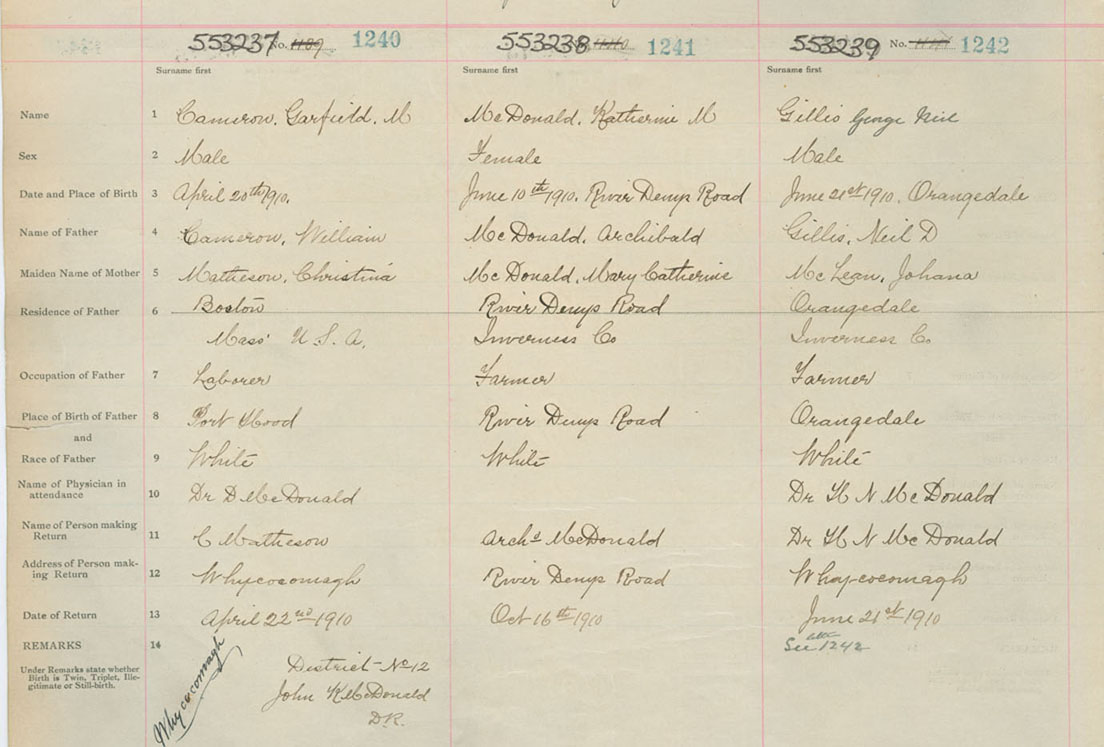 553237 No. 1240 553238 1241 553239 No. 1242
Surname first Surname first Surname first
Name 1 Cameron, Garfield, M McDonald, Katherine M Gillis George Neil
Sex 2 Male Female Male
Date and Place of Birth 3 April 20th 1910. June 10th 1910. River Denys Road June 21st 1910. Orangedale
Name of Father 4 Cameron, William McDonald, Archibald Gillis, Neil D
Maiden Name of Mother 5 Matheson, Christina McDonald, Mary Catherine McLean, Johana
Residence of Father 6 Boston River Denys Road Orangedale
Mass' U.S.A. Inverness Co Inverness Co.
Occupation of Father 7 Laborer Farmer Farmer
Place of Birth of Father 8 Port Hood River Denys Road Orangedale
and
Race of Father 9 White White White
Name of Physician in
attendance 10 Dr D McDonald Dr H N McDonald
Name of Person making
Return 11 C Matheson Archd McDonald Dr H N McDonald
Address of Person mak-
ing Return 12 Whycocomagh River Denys Road Whycocomagh
Date of Return 13 April 22nd 1910 Oct 16th 1910 June 21st 1910
REMARKS 14 See 1242
Under Remarks state whether
Birth is Twin, Triplet, Ille-
gitimate or Still-birth.
Whycocomagh
District No 12
John K McDonald
D.R.